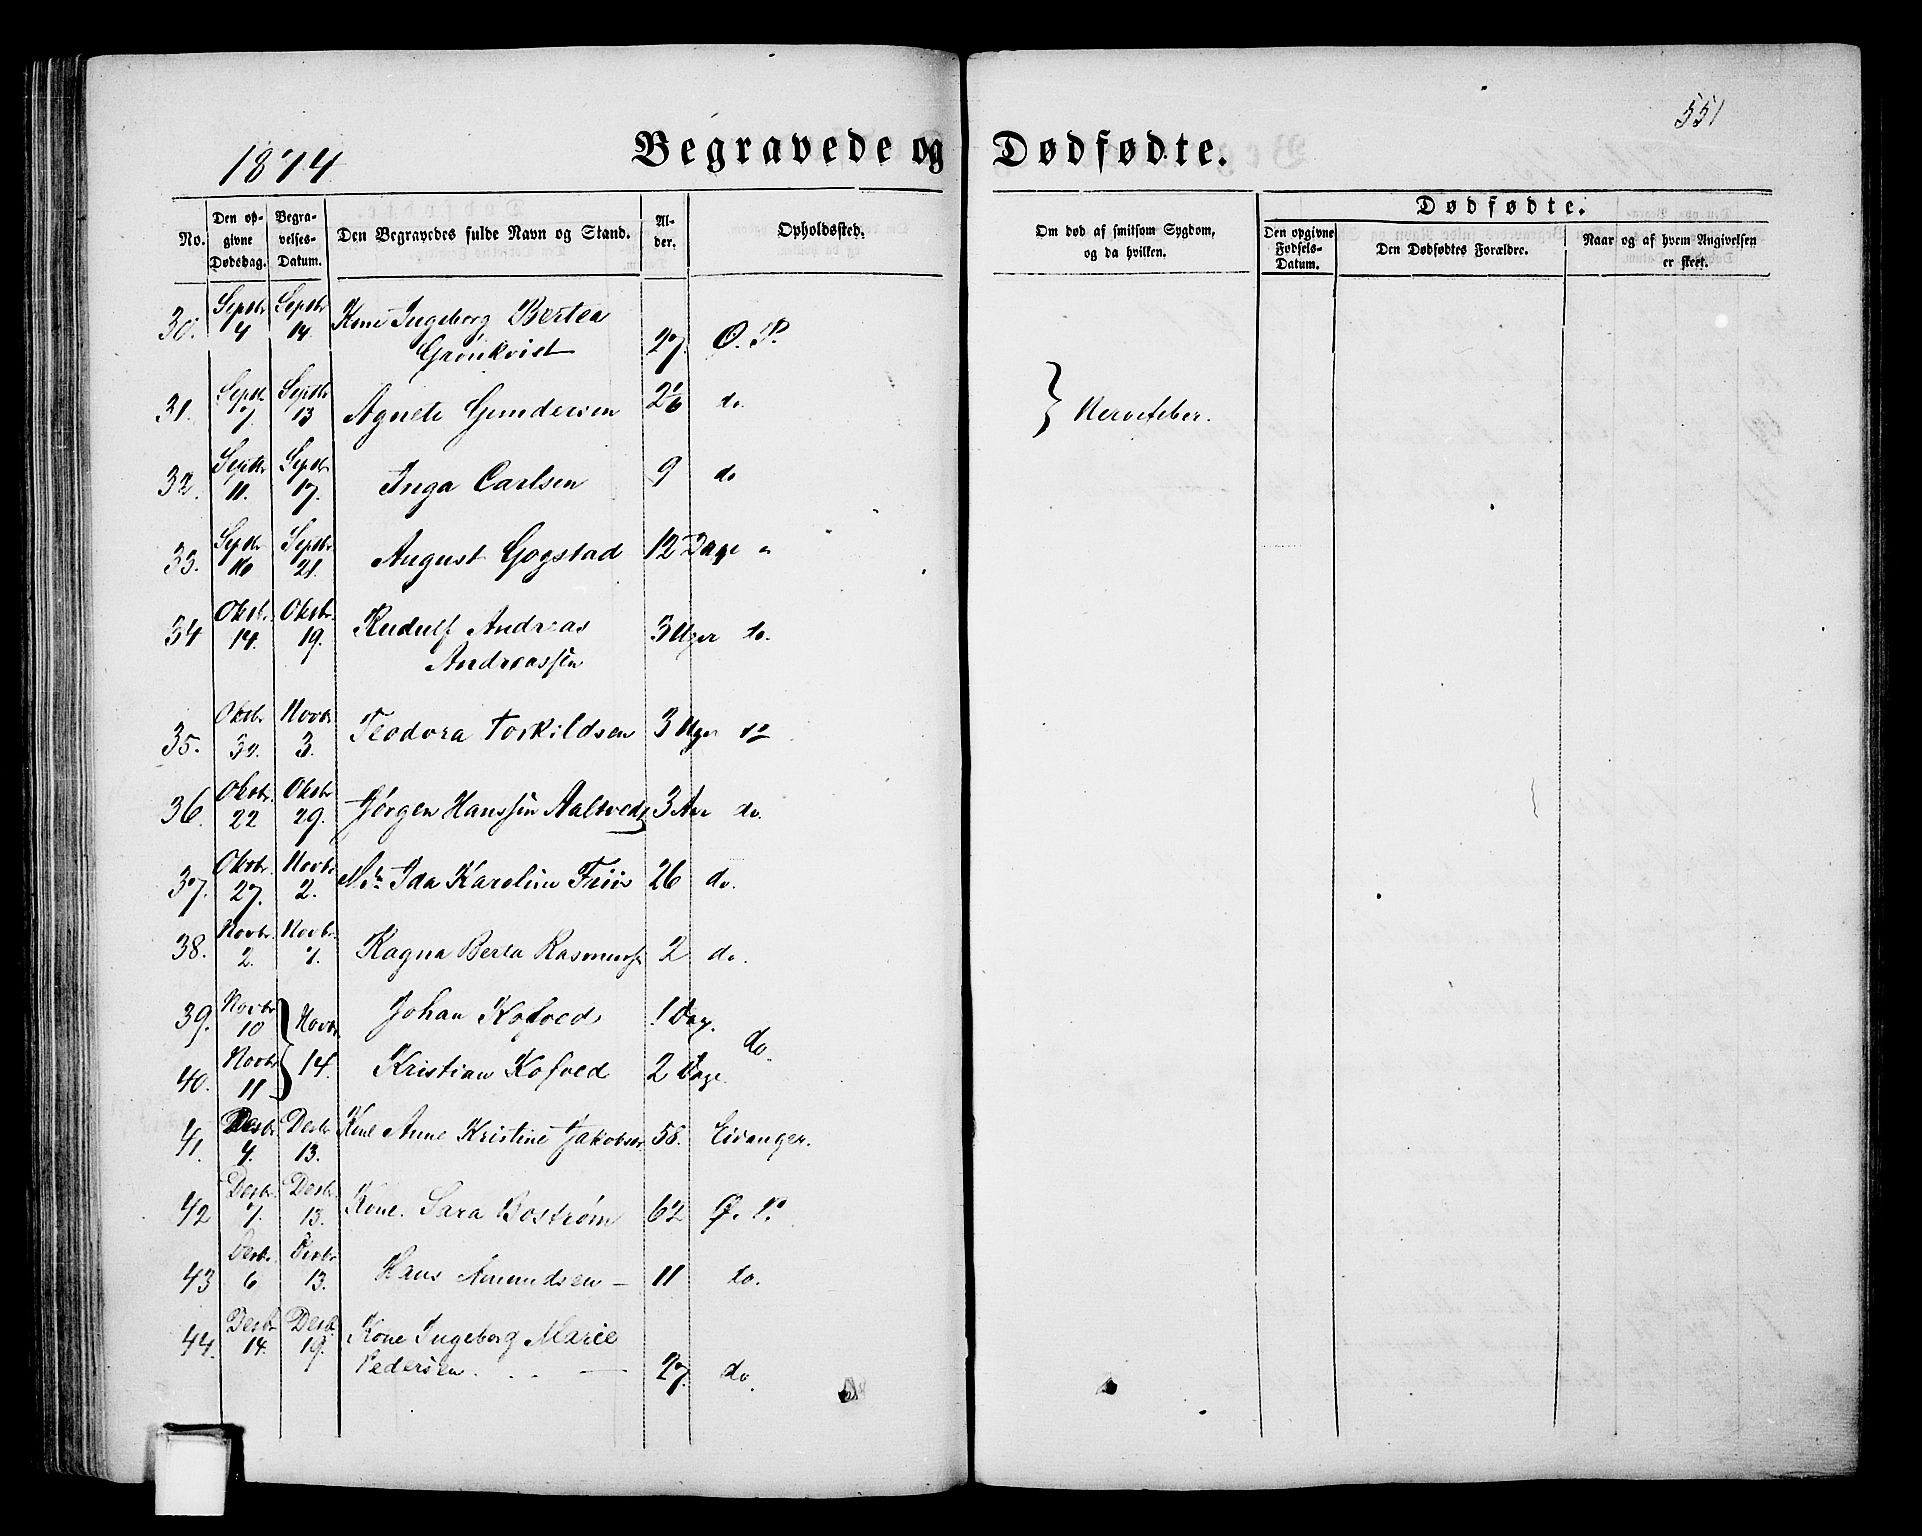 551
1874
Begravede og Dødfødte.
No. Den opgivne Dødsdag. Begravelses-Datum. Den Begravedes fulde Navn og Stand. Alder. Opholdssted. Om død af smitsom Sygdom, og da hvilken. Dødfødte. Den opgivne Fødsels-Datum. Den Dødfødtes Forældre. Naar og af hvem Angivelsen er skeet.
30. Septbr 4 Septbr 14. Kone Ingeborg Bertea
Grönkvist 27. Ø. P.
31. Septbr 7. Septbr 13 Agnete Gundersen do. } Nervefeber.
32. Septbr 11. Septbr 17. Inga Carlsen 9 do
33. Septbr 16 Septbr 21. August Gogstad 12 Dage "
34 Oktbr. 14. Oktbr. 19. Rudulf Andreas
Andreassen 3 Uger do.
35. Oktbr. Novbr 3. Teodora Torkildsen 3 Uger do
36. Oktbr. 22 Oktbr 29. Jørgen Hanssen Aaltvedt 3 Aar do.
37. Oktbr. 27. Novbr 2. Ida Karoline Friis 26 do.
38. Novbr. 2. Novbr. 7. Ragna Berta Rasmuss 2 do.
39. Novbr 10 } Novbr. Johan Kofoed 1 Dag.
do.
40. Novbr 11 14. Kristian Kofoed 2 Dage.
41. Desbr. 4. Desbr. 13. Kone Anne Kristine Jakobsen 58. Eidanger.
42 Desbr. 7. Desbr. 13. Kone. Sara Bostrøm 62 Ø. P.
43 Desbr. 6 Desbr 13. Hans Amundsen – 11 do.
44. Desbr 14. Desbr 19. Kone Ingeborg Marie
Pedersen . . . — 27. do.